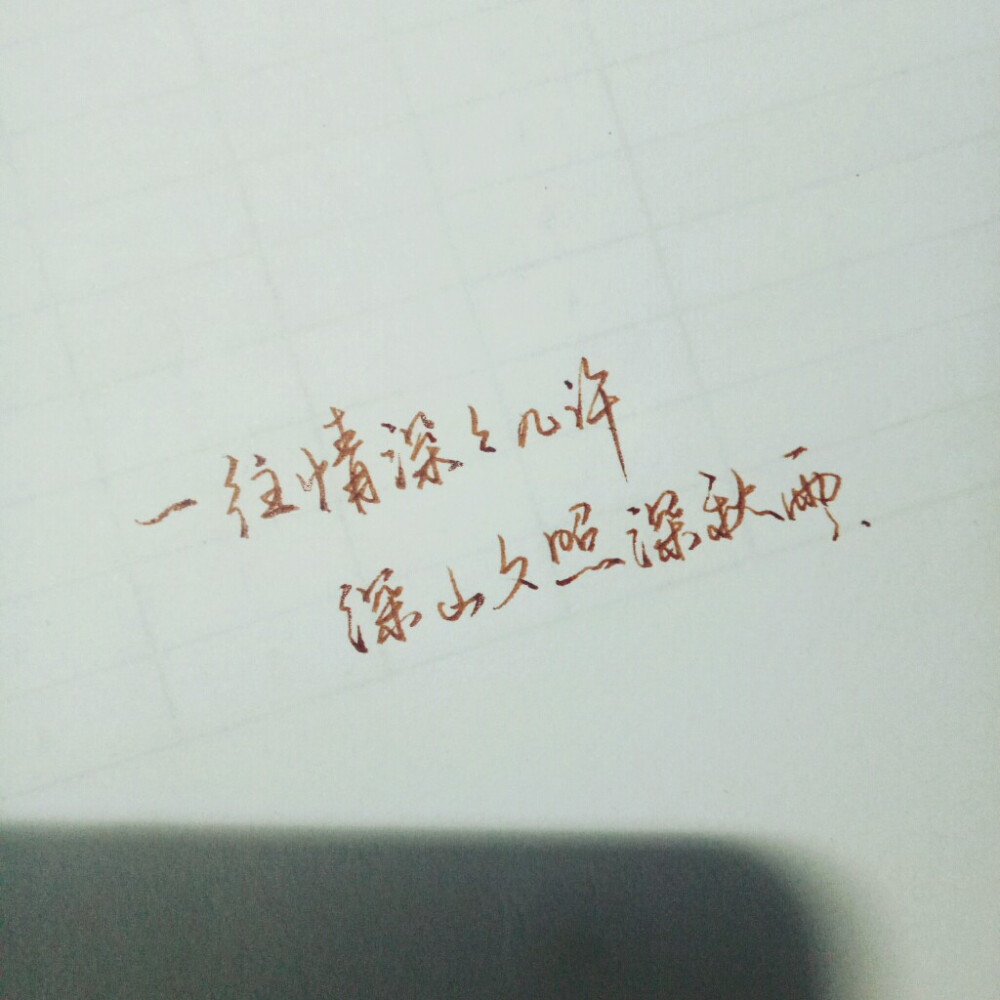 一往情深深几许
深山夕照深秋雨.